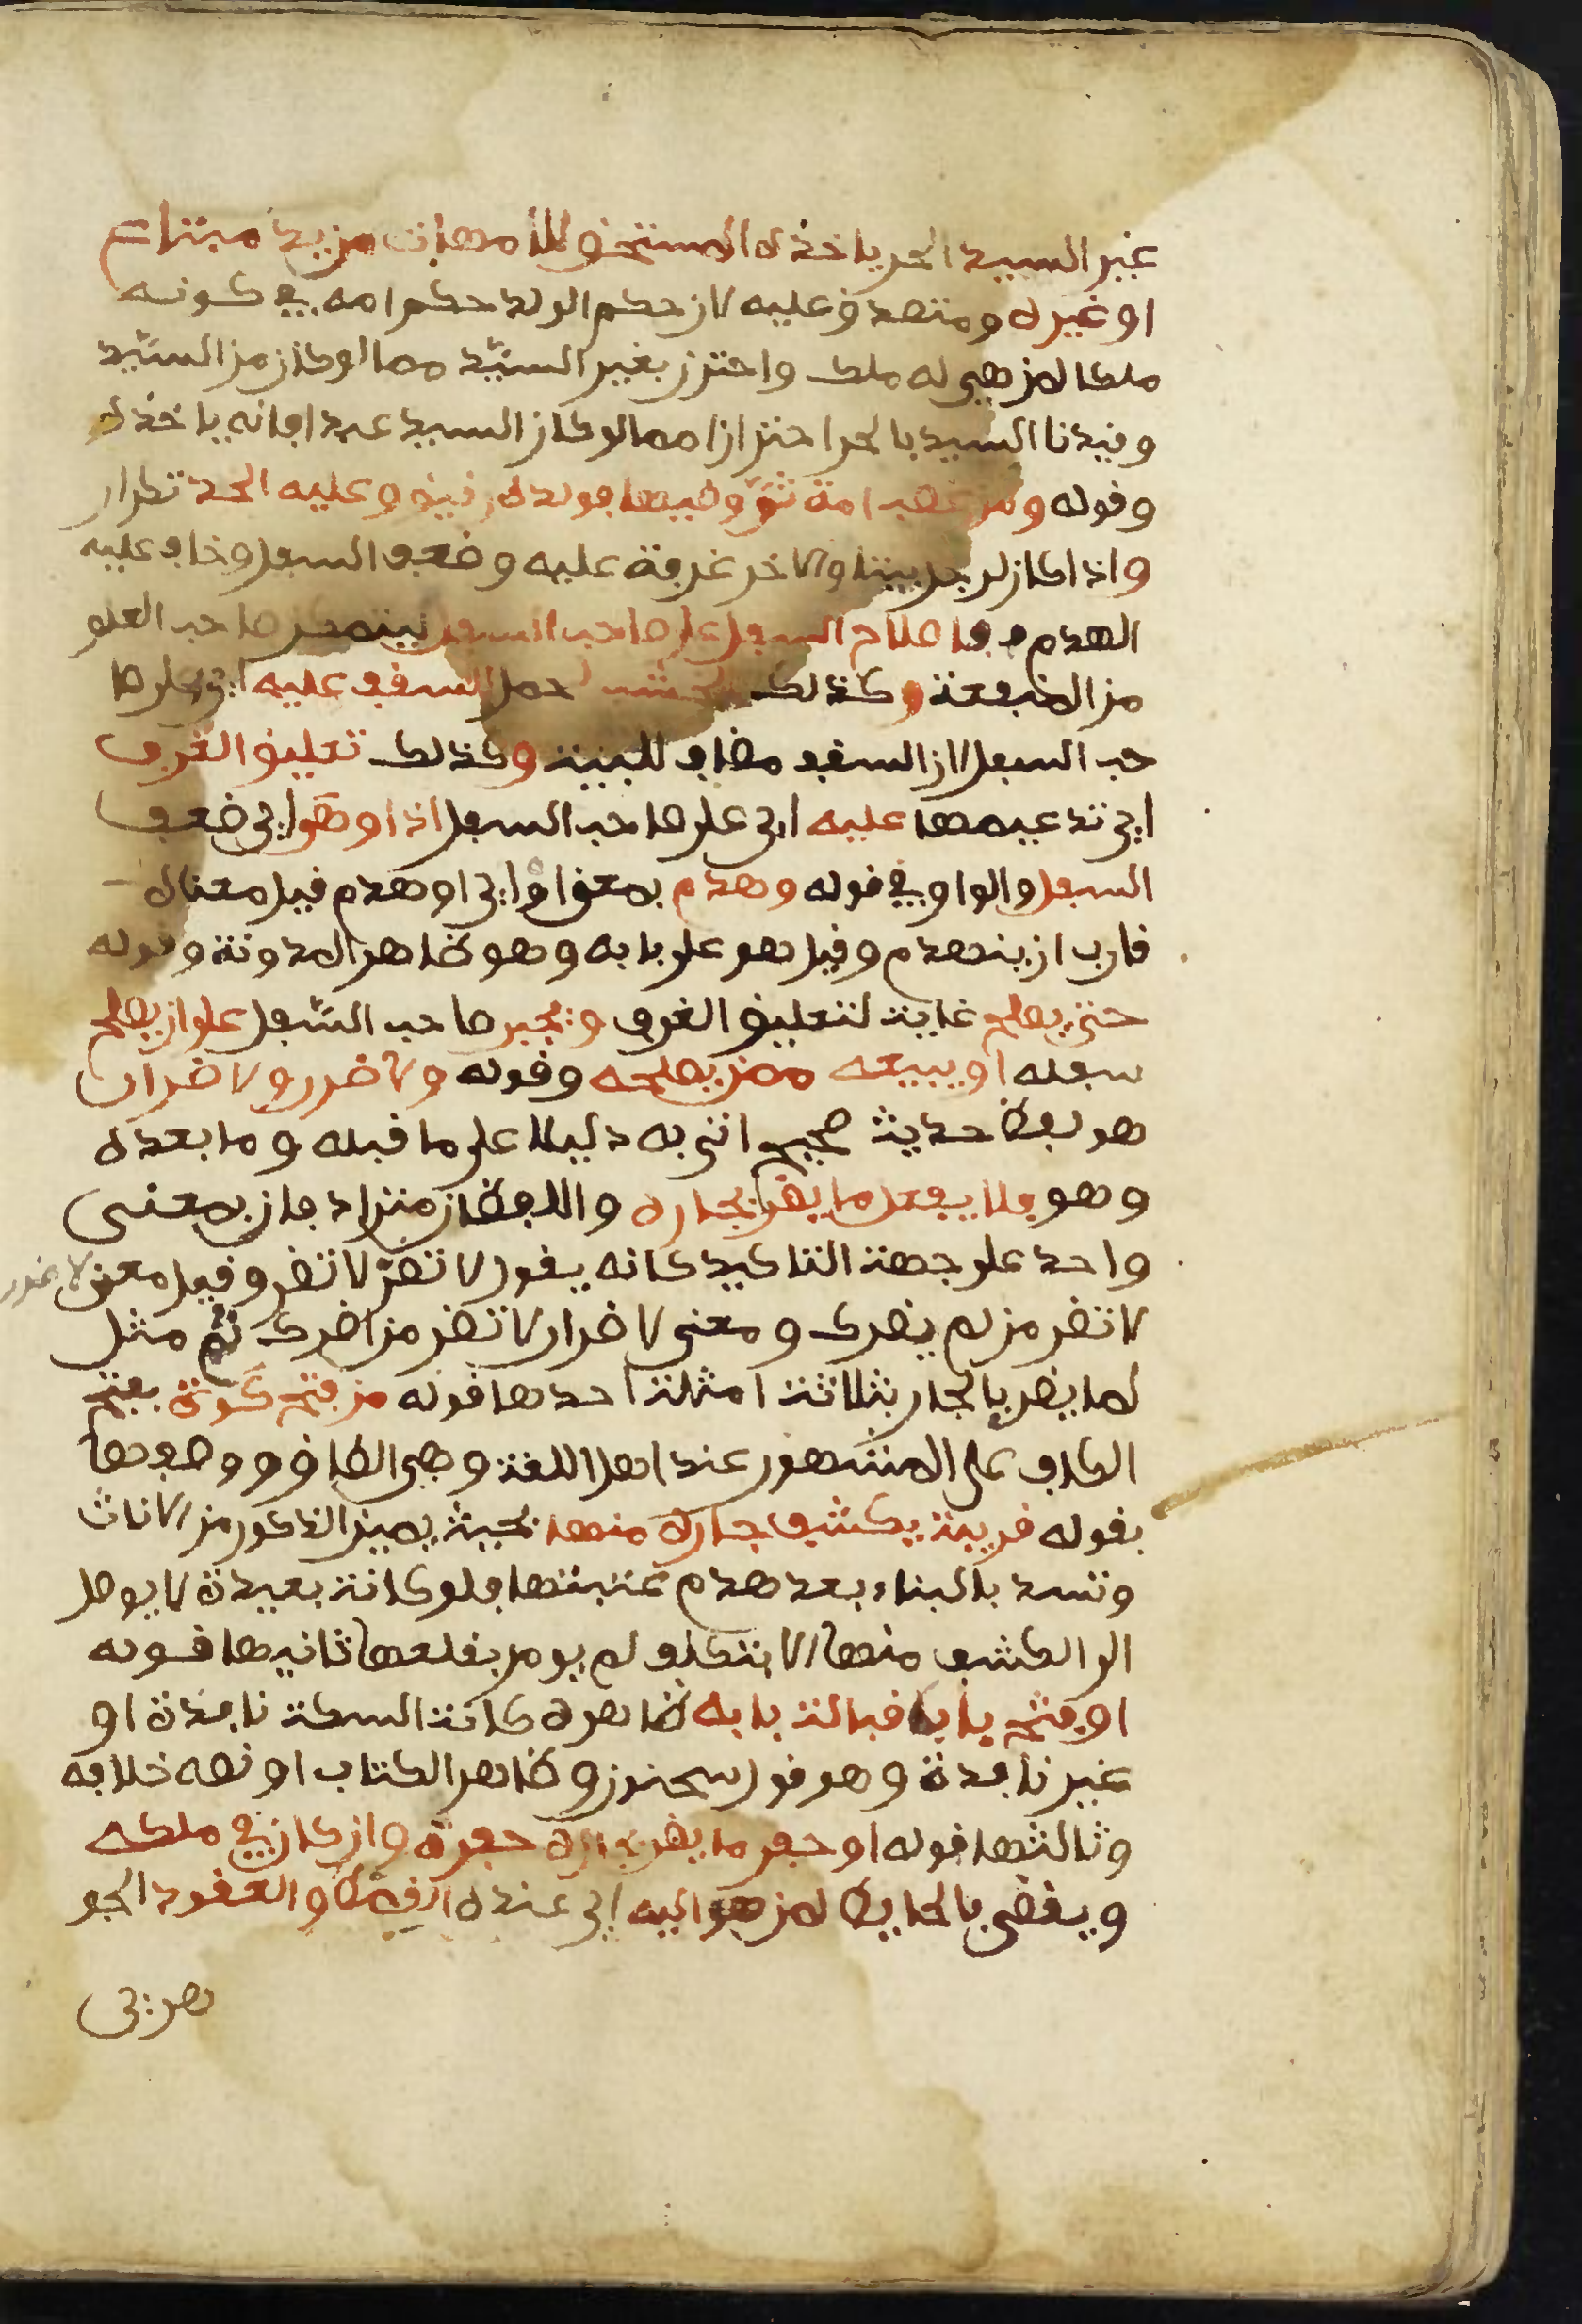 غير السيد الحر ياخذه المستحق للأمهات من يد مبتاع
او غيره ومتصدق عليه لان حكم الولد حكم امه في كونه
ملكا لمن هي له ملك واحترز بغير السيّد مما لو كان من السيّد
وقيدنا السيد بالحر احترازا مما لو كان السيد عبدا فانه ياخذه
وقوله ومن غصب امة ثمّ وطيها فولده رقيق وعليه الحد تكرار
واذا كان لرجل بيتا والاخر غرفة عليه وضعف السفل وخاف عليه
الهدم فاصلاح السفل على صاحب السفل ليتمكن صاحب العلو
من المنفعة وكذلك الخشب لحمل السقف عليه اي على صا
حب السفل لان السقف مضاف للبيت وكذلك تعليق الغرف
اي تدعيمها عليه اي على صاحب السفل اذا وهى اي ضعف
السفل والواو في قوله وهدم بمعنى اوْ اي او هدم قيل معناه
قارب ان ينهدم وقيل هو على بابه وهو ظاهر المدونة وقوله
حتى يصلح غاية لتعليق الغرف ويجبر صاحب السّفل على ان يصلح
سفله او يبيعه ممن يصلحه وقوله ولا ضرر ولا ضرار
هو لفظ حديث صحيح اتى به دليلا على ما قبله وما بعده
وهو فلا يفعل ما يضر بجاره واللفظان مترادفان بمعنى
واحد على جهة التاكيد كانه يقول لا تضرّ لا تضر وقيل معنى لا ضرر
لا تضر من لم يضرك ومعنى لا ضرار لا تضر من اضرك ثم مثل
لما يضر بالجار بثلاثة امثلة احدها قوله من فتح كوة بفتح
الكاف على المشهور عند اهل اللغة وهي الطاق ووصفها
بقوله قريبة يكشف جاره منها بحيث يميز الذكور من الاناث
وتسد بالبناء بعد هدم عتبتها فلو كانت بعيدة لا يوصل
الى الكشف منها الا بتكلف لم يومر بقلعها ثانيها قوله
او فتح باب قبالة بابه ظاهره كانت السكة نافذة او
غير نافذة وهو قول سحنون وظاهر الكتاب او نصه خلافه
وثالثها قوله او حفر ما يضر بجاره حفره وان كان في ملكه
ويقضى بالحايط لمن هو اليه اي عنده القمط والعقود الجو
هري